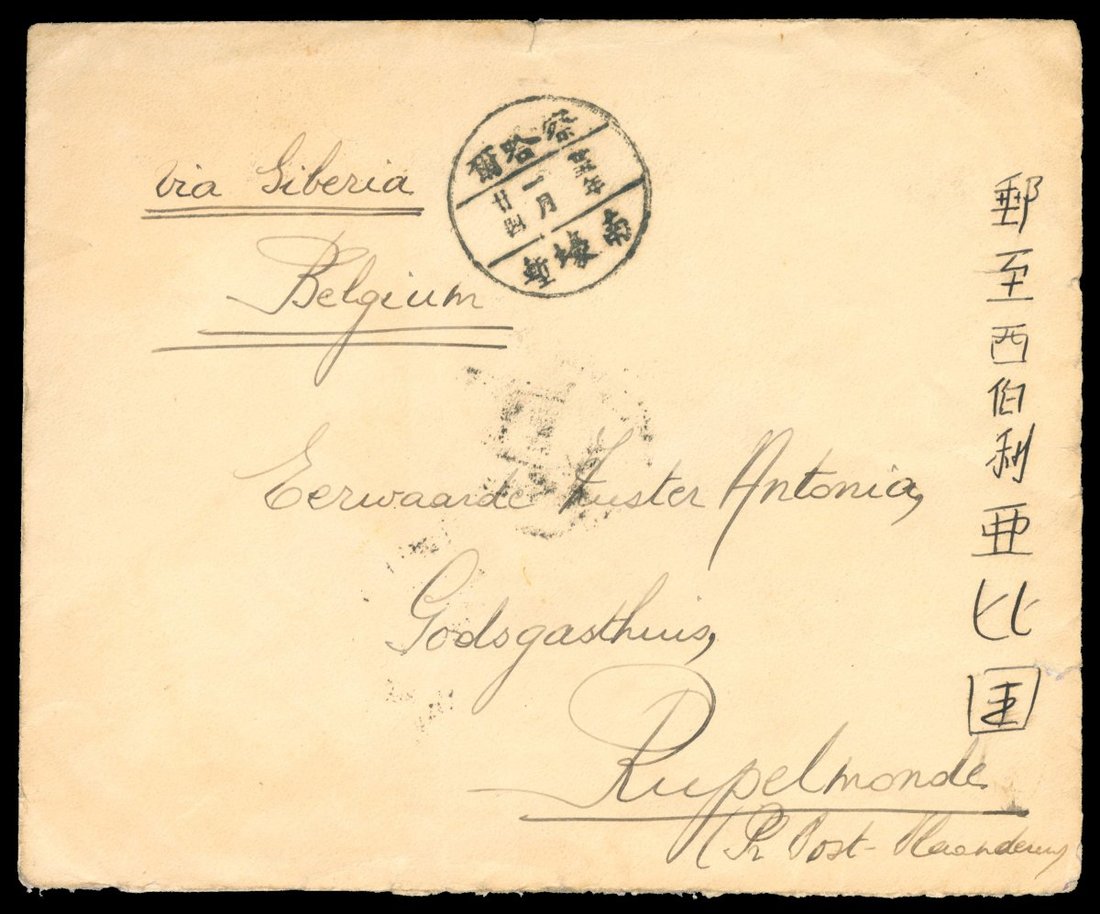 via Siberia
Belgium
察哈爾
年
一月
廿四
南壕塹
Eerwaarde Zuster Antonia,
Godsgasthuis,
Rupelmonde
(Pr Oost-Vlaanderen)
郵至西伯利亜比国